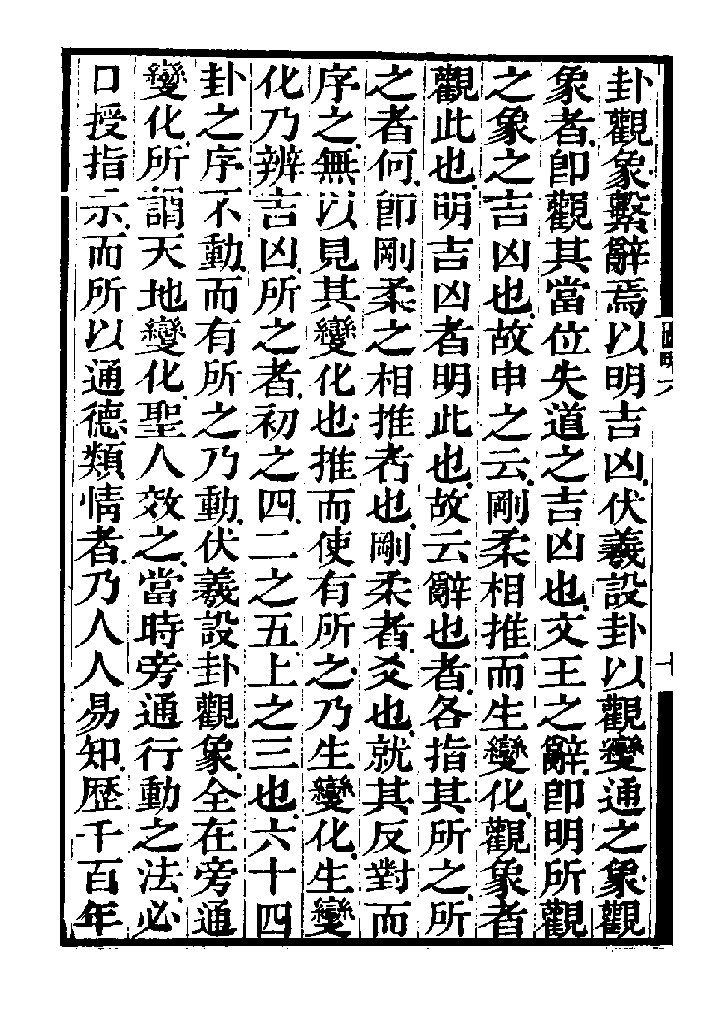 卦觀象繫辭焉以明吉凶伏羲設卦以觀變通之象觀
象者卽觀其當位失道之吉凶也文王之辭卽明所觀
之象之吉凶也故申之云剛柔相推而生變化觀象者
觀此也明吉凶者明此也故云辭也者各指其所之所
之者何卽剛柔之相推者也剛柔者爻也就其反對而
序之無以見其變化也推而使有所之乃生變化生變
化乃辨吉凶所之者初之四二之五上之三也六十四
卦之序不動而有所之乃動伏羲設卦觀象全在旁通
變化所謂天地變化聖人效之當時旁通行動之法必
口授指示而所以通德類情者乃人人易知歷千百年